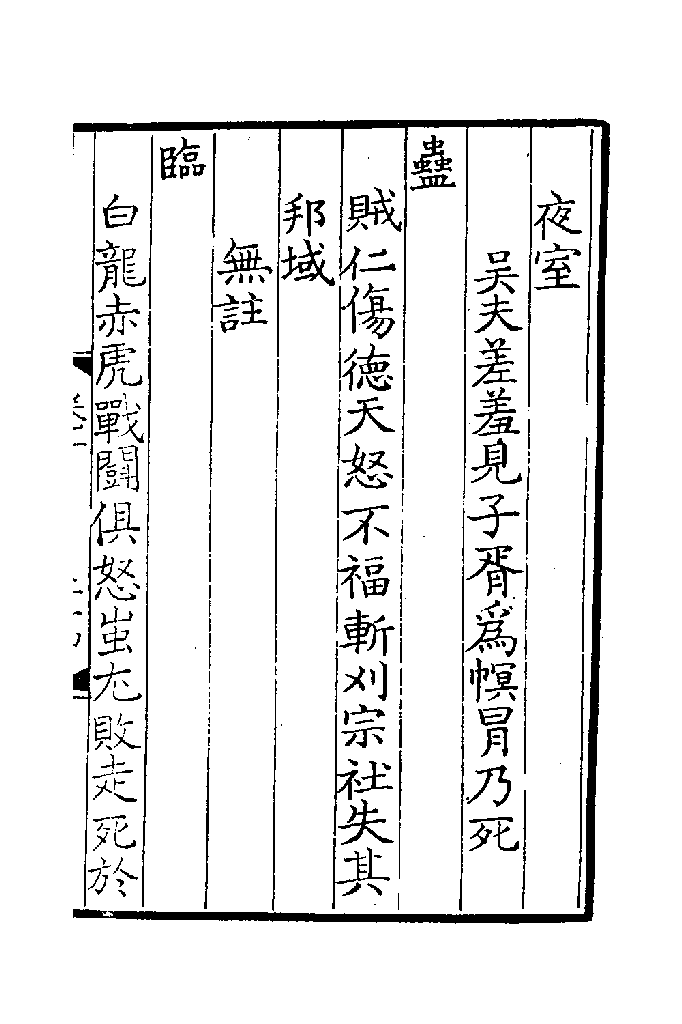 夜室
吴夫差羞見子胥為幎冐乃死
蠱
賊仁傷德天怒不福斬刈宗社失其
邦域
無註
臨
白龍赤虎戰鬬俱怒蚩尤敗走死於